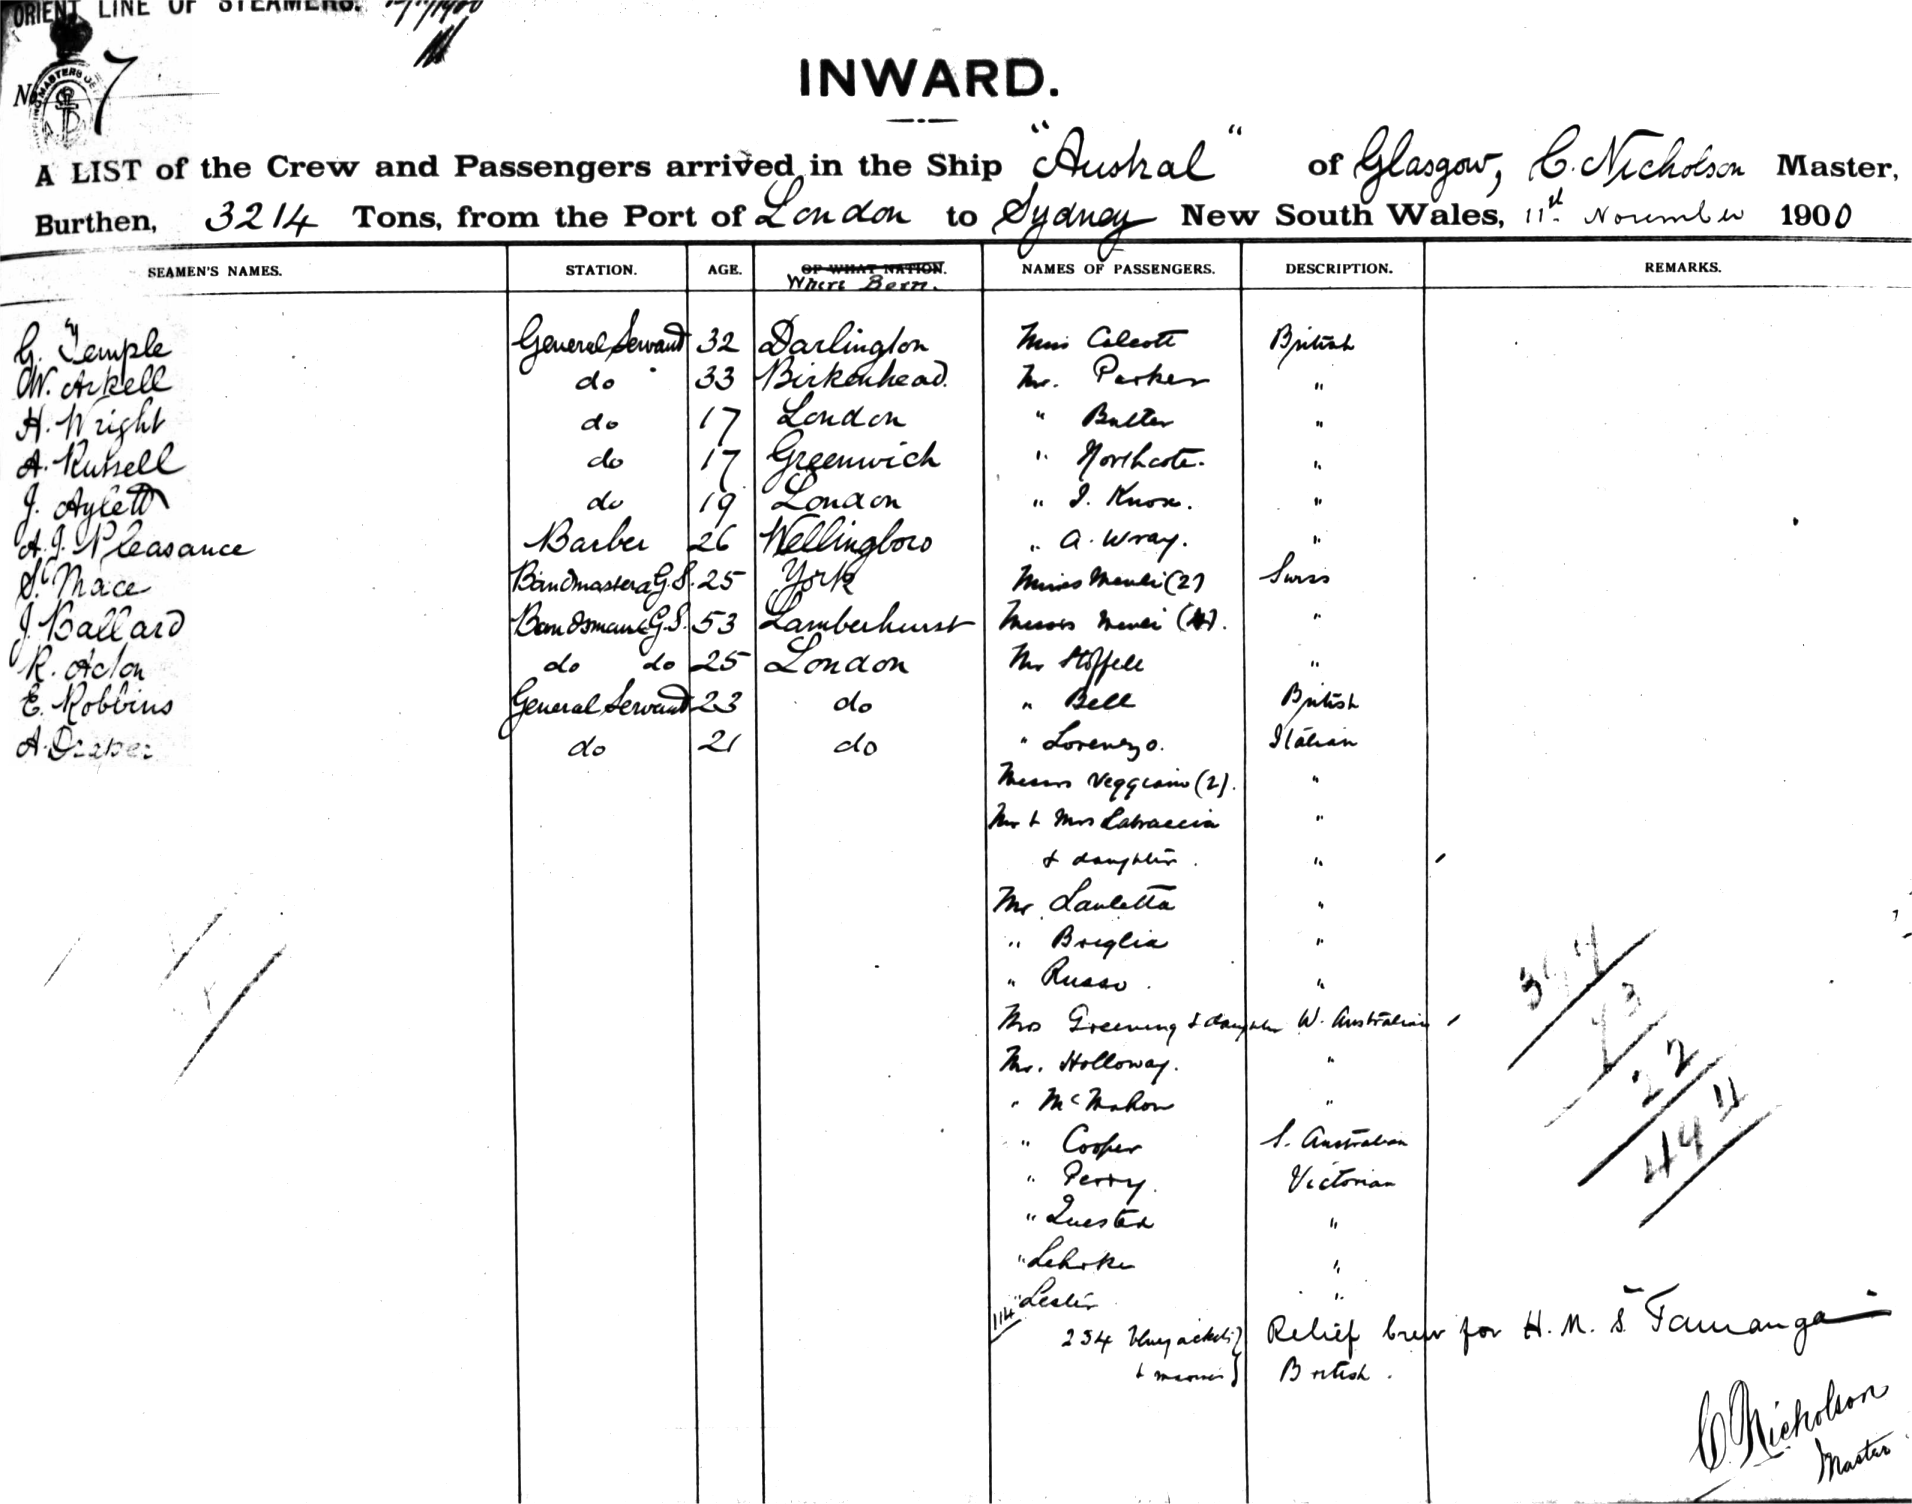 ORIENT LINE OF STEAMERS.
No. 7
INWARD.
A LIST of the Crew and Passengers arrived in the Ship "Austral" of Glasgow, C. Nicholson Master,
Burthen, 3214 Tons, from the Port of London to Sydney New South Wales, 11th November 1900
SEAMEN'S NAMES. STATION. AGE. OF WHAT NATION. NAMES OF PASSENGERS. DESCRIPTION. REMARKS.
Where Born.
G. Temple General Servant 32 Darlington Miss Calcott British
W. Arkell do 33 Birkenhead. Mr. Parker "
H. Wright do 17 London " Butler "
A. Russell do 17 Greenwich " Northcote. "
J. Aylett do 19 London " I. Knox. "
A.J. Pleasance Barber 26 Wellingboro " A. Wray. "
S. Mace Bandmaster & G.S. 25 York Misses (2) Swiss
J. Ballard Bandsman & G.S. 53 Lamberhurst Messrs "
R. Acton do do 25 London Mr Stoffell "
E. Robbins General Servant 23 do " Bell British
A. Draper do 21 do " Lorenzo. Italian
Messrs Veggiano (2). "
Mr & Mrs Labraccia "
& daughter. "
Mr Lauletta "
" Briglia "
" Russo. "
Mrs Greening & daughter W. Australian
Mr. Holloway. "
" McMahon "
" Cooper S. Australian
" Perry. Victorian
" Quested "
" "
" Leslie "
114
234 bluejackets Relief Crew for H.M.S.
& marines British.
22
C. Nicholson
Master